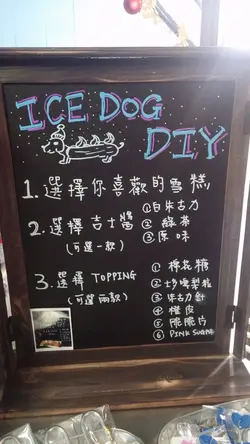 ICE DOG
DIY
1. 選擇你喜歡的雪糕
2. 選擇吉士醬
(可選一款)
①白朱古力
②綠茶
③原味
3. 選擇 TOPPING
(可選兩款)
① 棉花糖
② 士多啤梨粒
③ 朱古力針
④ 橙皮
⑤ 脆脆片
⑥ PINK SUGAR